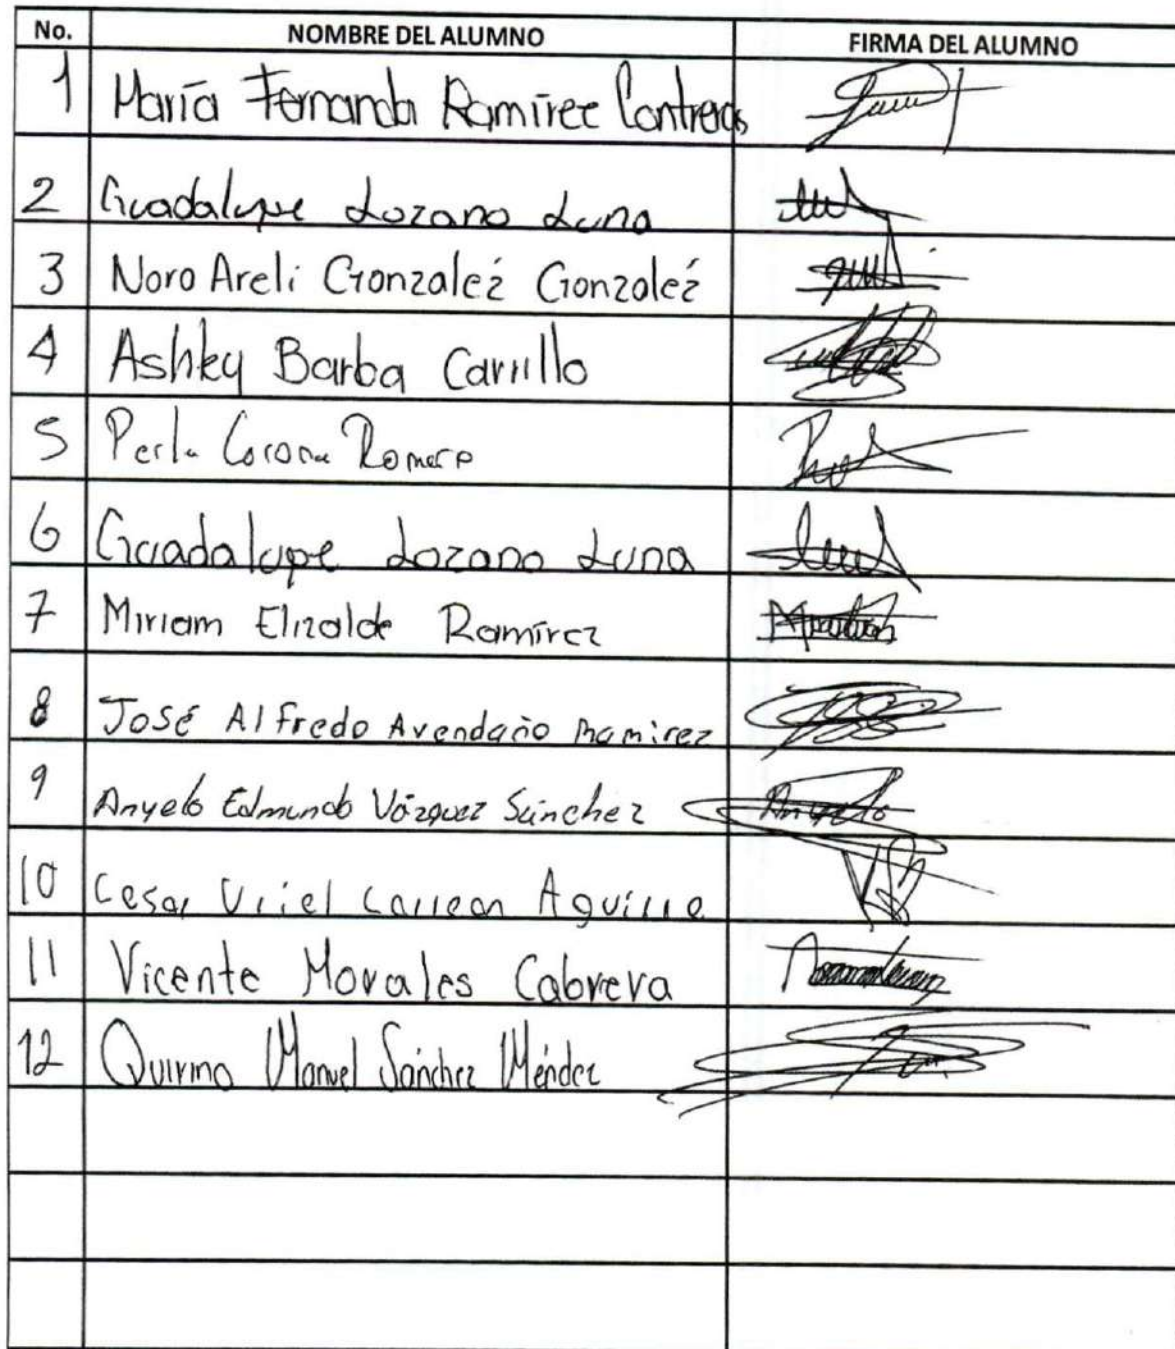 No. NOMBRE DEL ALUMNO FIRMA DEL ALUMNO
1 María Fernanda Ramírez Contreras
2 Guadalupe Lozano Luna
3 Nora Areli Gonzaléz Gonzaléz
4 Ashley Barba Carrillo
5 Perla Corona Romero
6 Guadalupe Lozano Luna
7 Miriam Elizalde Ramírez
8 José Alfredo Avendaño Ramirez
9 Anyelo Edmundo Vázquez Sánchez
10 Cesar Uriel Carreon Aguirre
11 Vicente Morales Cabrera
12 Quirino Manuel Sánchez Méndez